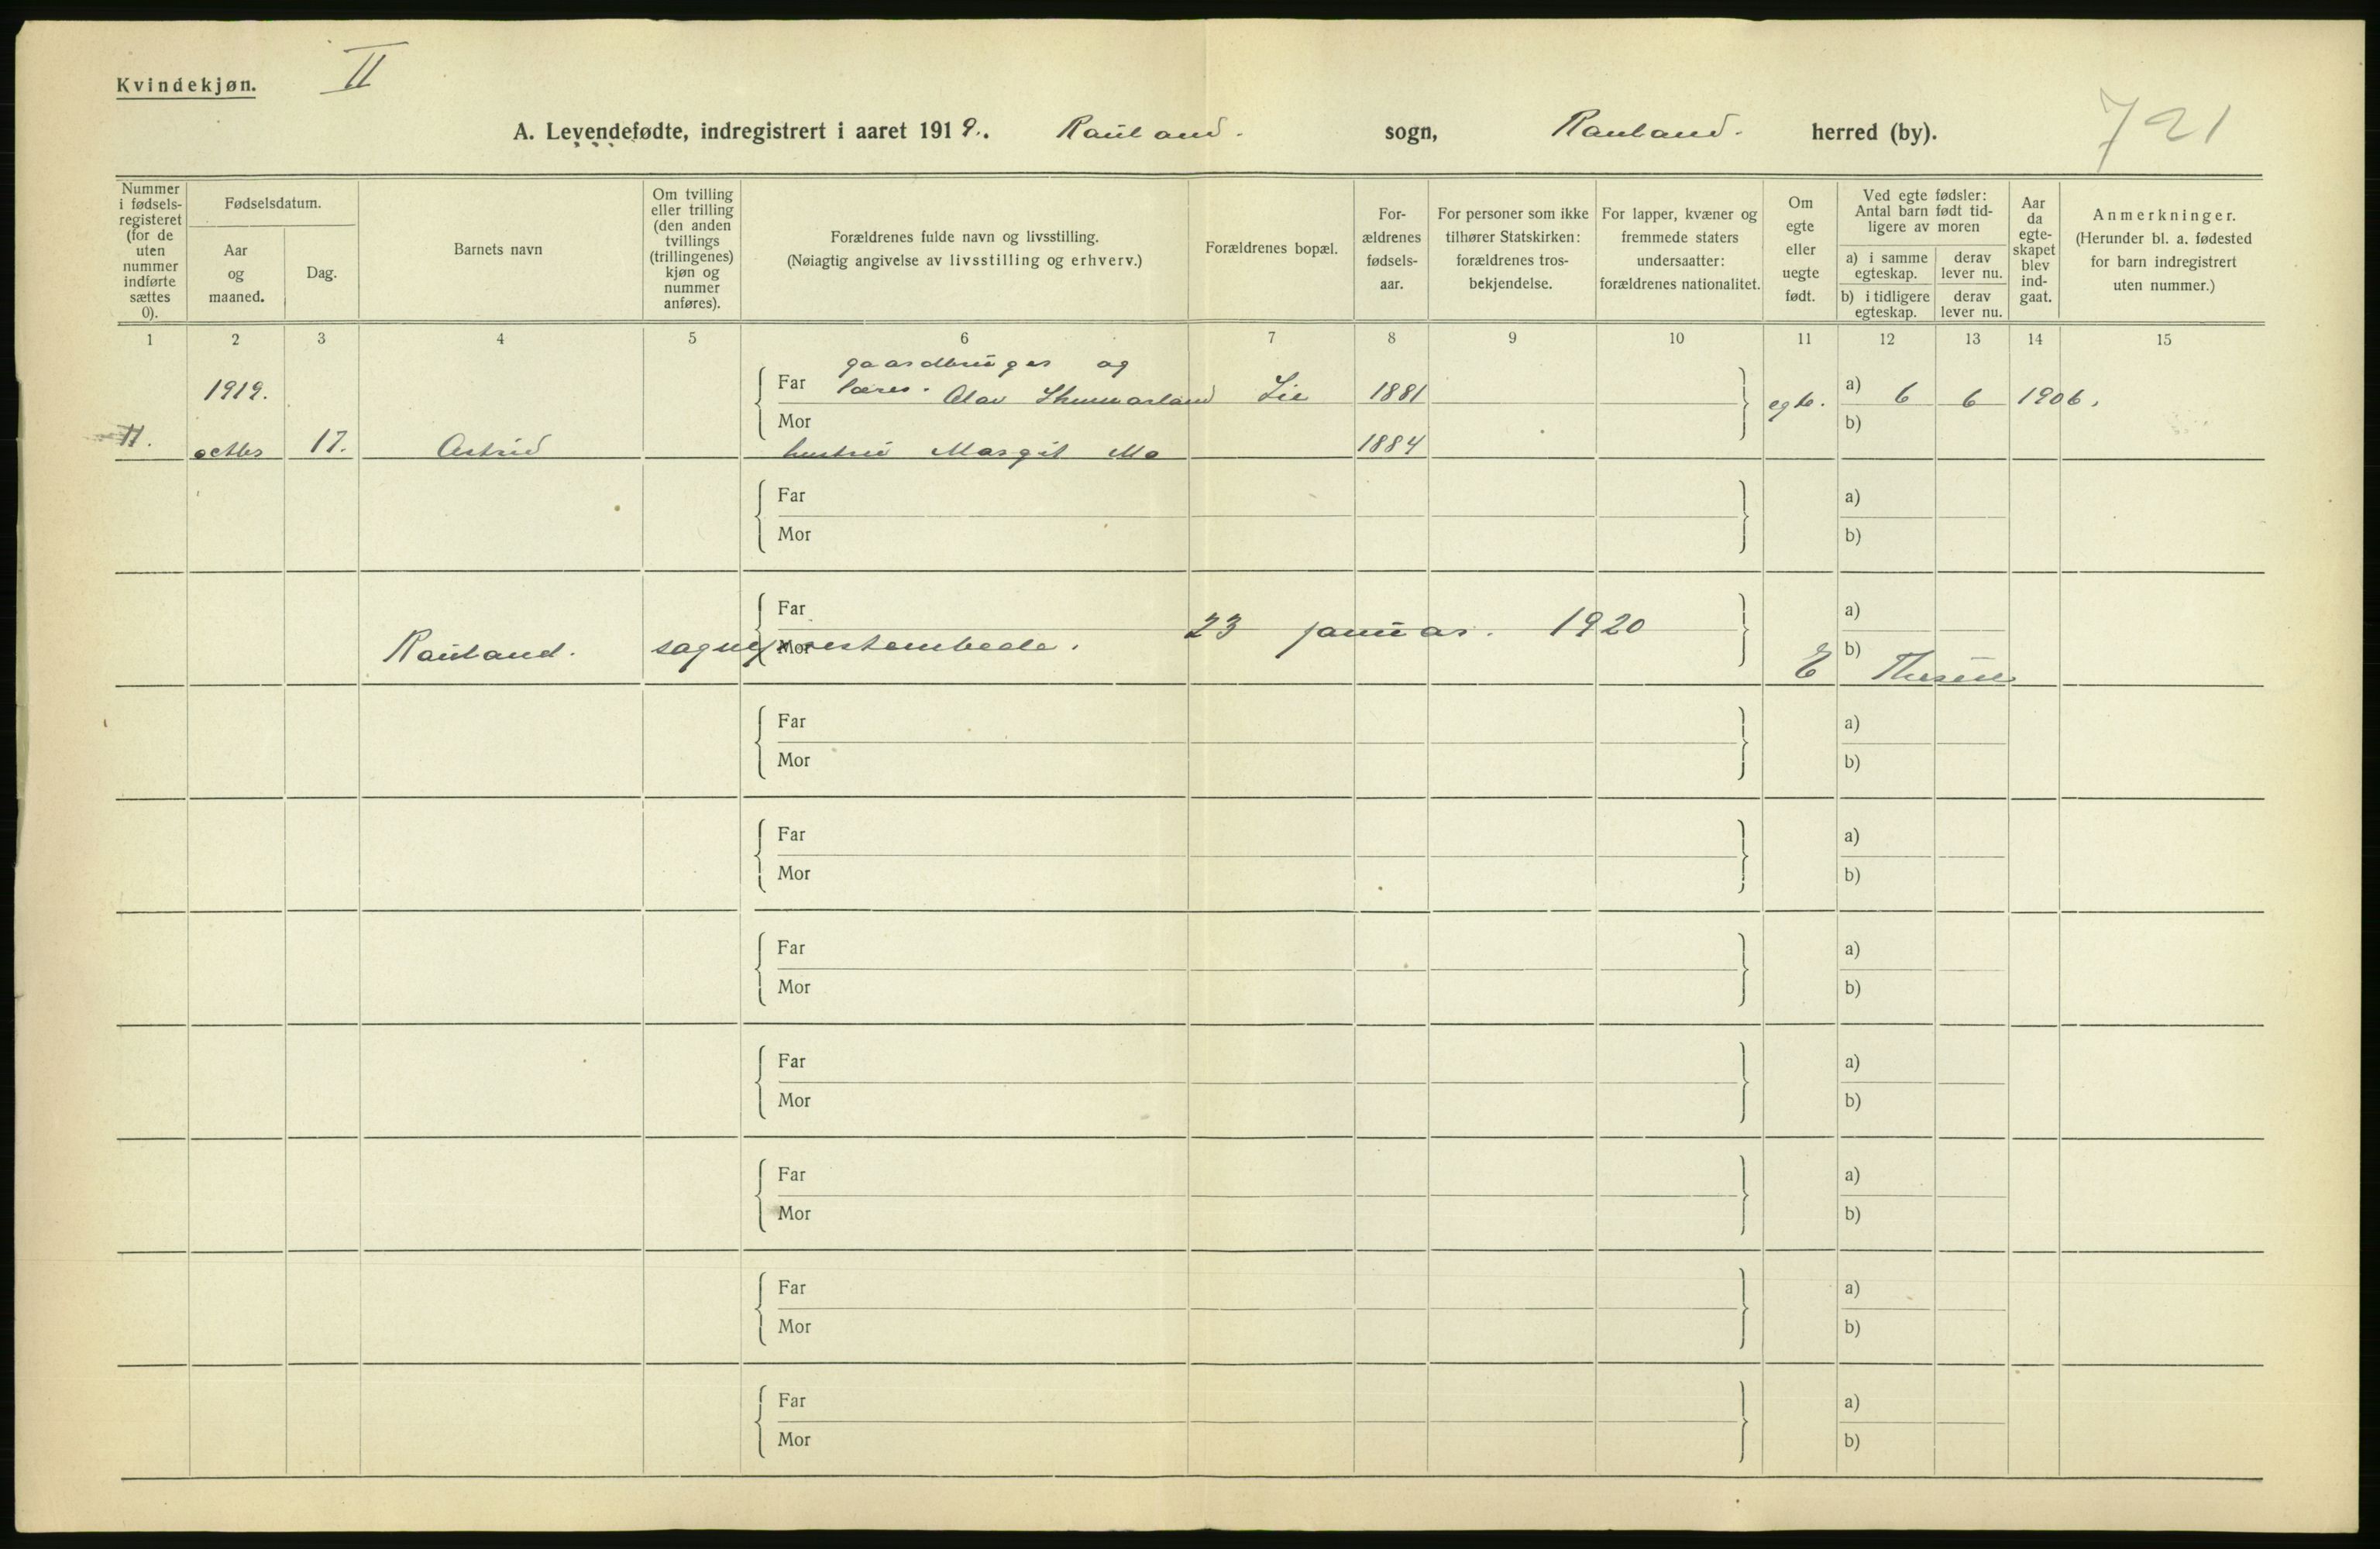 Kvindekjøn.
II
A. Levendefødte, indregistrert i aaret 1919. Rauland. sogn, Rauland. herred (by).
721
Nummer i fødsels-registeret (for de uten nummer indførte sættes 0).
Fødselsdatum.
Aar og maaned.
Dag.
Barnets navn
Om tvilling eller trilling (den anden tvillings (trillingenes) kjøn og nummer anføres).
Forældrenes fulde navn og livsstilling.
(Nøiagtig angivelse av livsstilling og erhverv.)
Forældrenes bopæl.
For-ældrenes fødsels-aar.
For personer som ikke tilhører Statskirken: forældrenes tros-bekjendelse.
For lapper, kvæner og fremmede staters undersaatter: forældrenes nationalitet.
Om egte eller uegte født.
Ved egte fødsler: Antal barn født tid-ligere av moren
a) i samme egteskap.
derav lever nu.
b) i tidligere egteskap.
derav lever nu.
Aar da egte-skapet blev ind-gaat.
Anmerkninger.
(Herunder bl. a. fødested for barn indregistrert uten nummer.)
1 2 3 4 5 6 7 8 9 10 11 12 13 14 15
gaardbruger og
1919. Far lærer. Olav Lie 1881 egte. a) 6 6 1906.
Mor b)
11. octbr 17. Astrid hustru Margit Mo 1884
Far a)
Mor b)
Far a)
23 januar. 1920
Rauland. sogneprestembede. Mor b)
E
Far a)
Mor b)
Far a)
Mor b)
Far a)
Mor b)
Far a)
Mor b)
Far a)
Mor b)
Far a)
Mor b)
Far a)
Mor b)